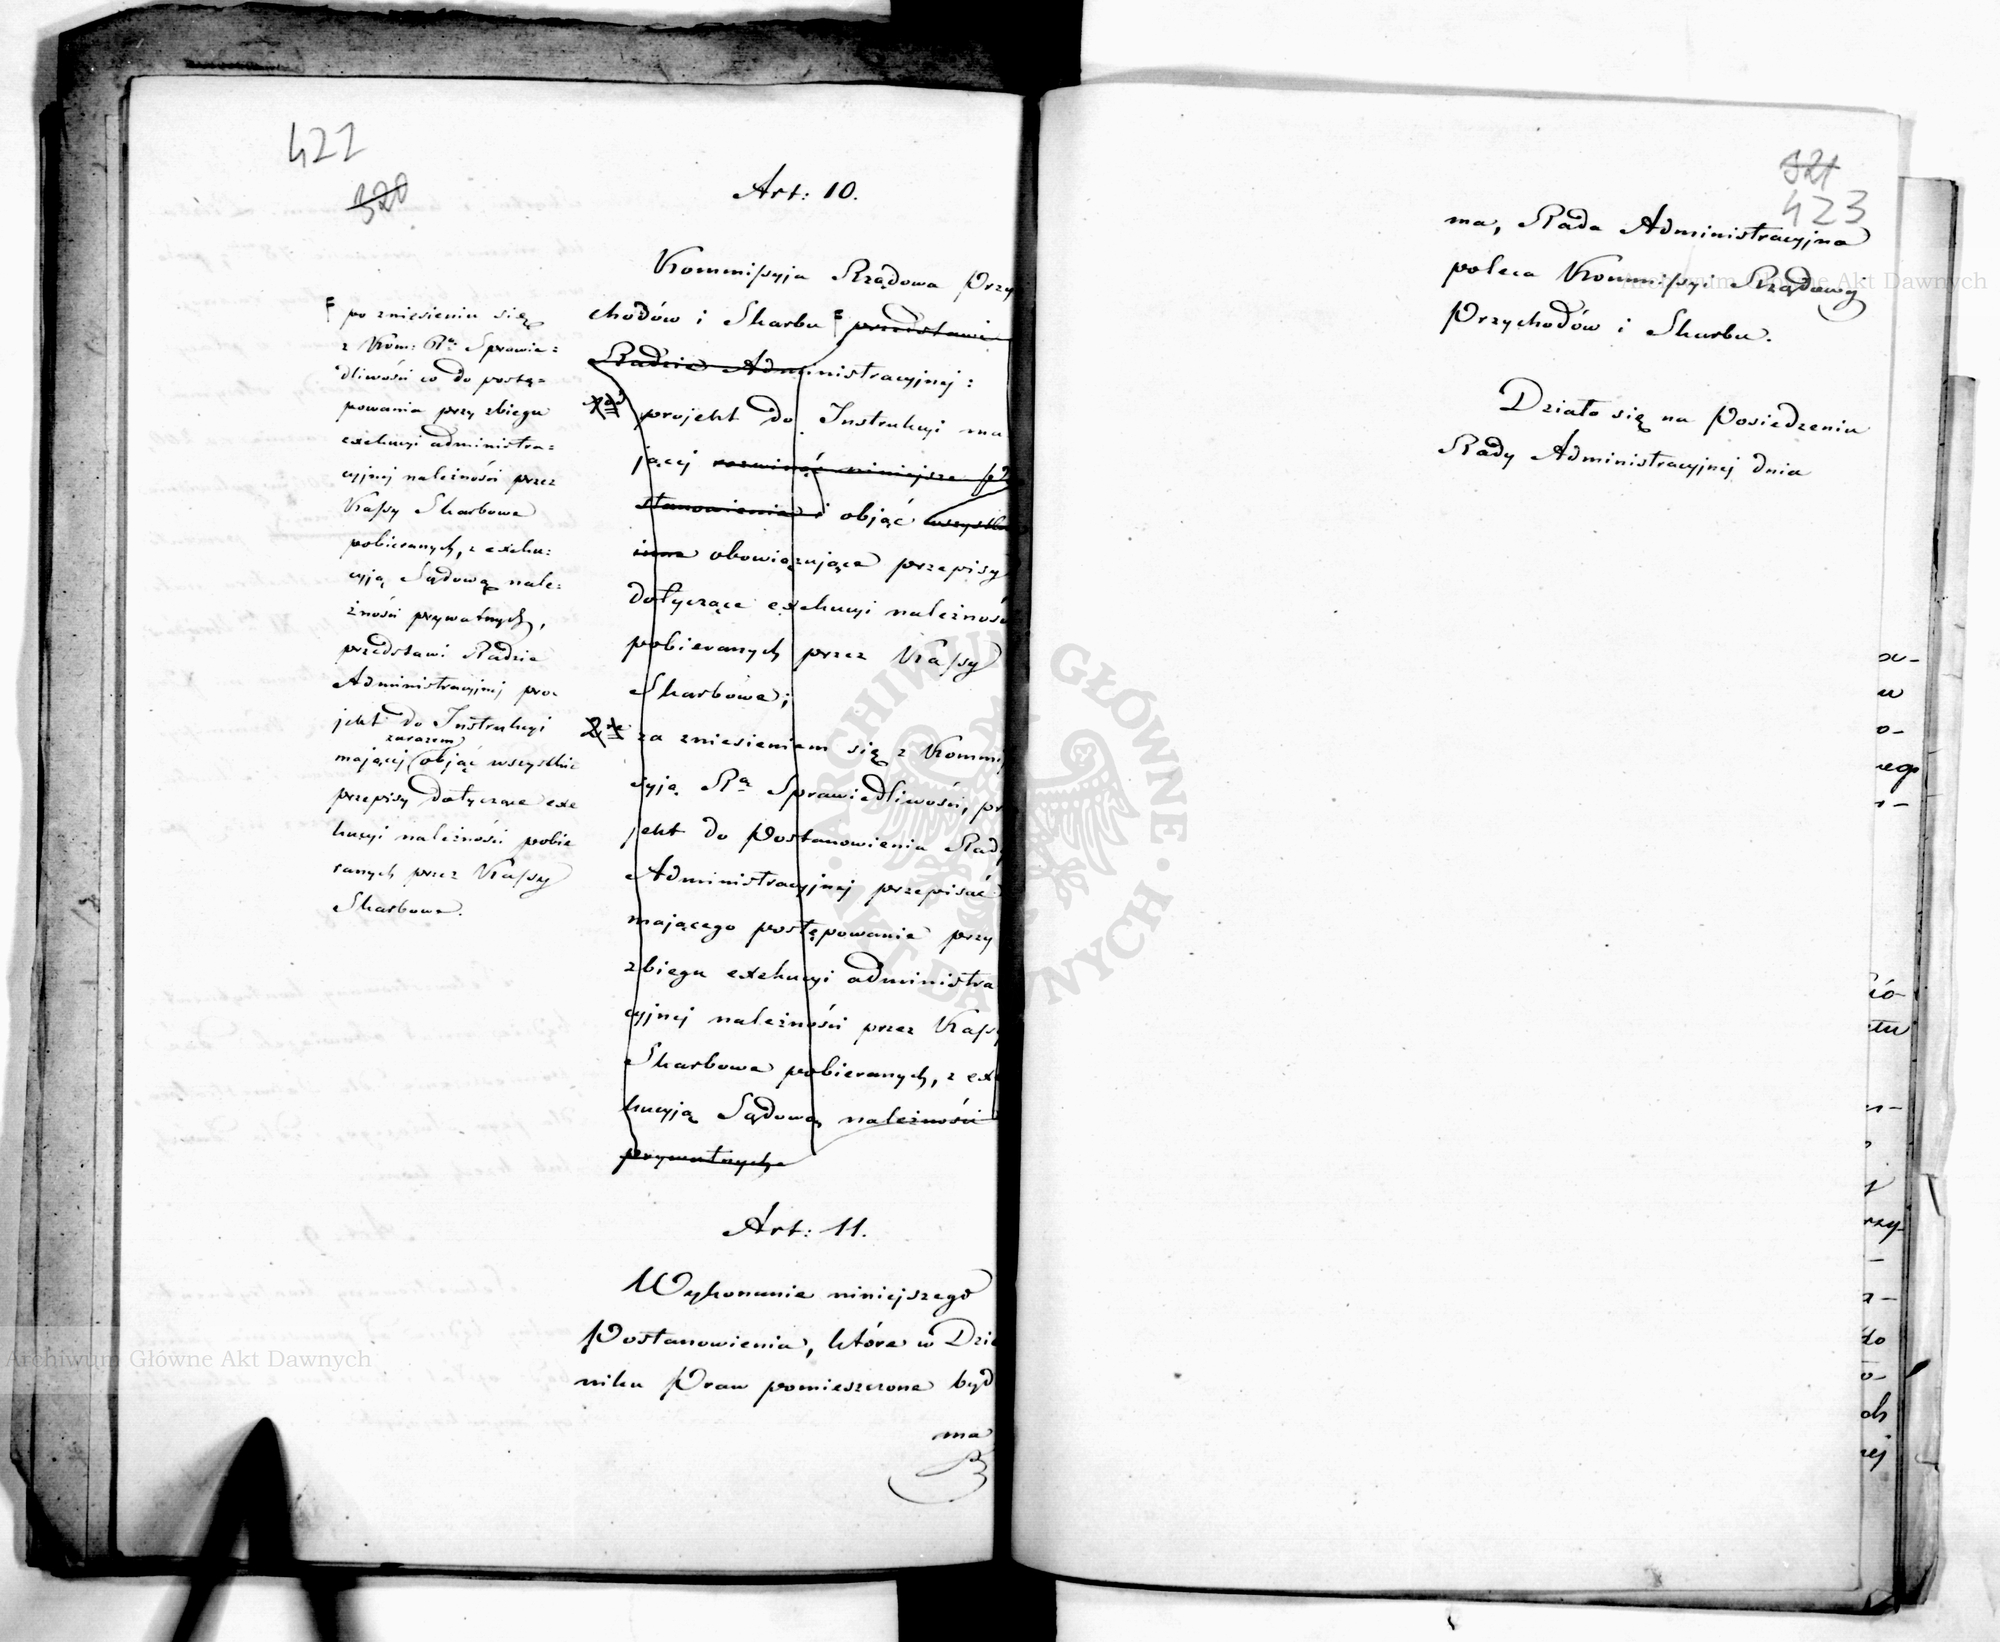 422
320
Art: 10.
Kommissyja Rządowa Przy
chodów i Skarbu F przedstawi
Radzie Administracyjnej:
projekt do Instrukcyi ma
jącej rozwinąć niniejsze Po
stanowienie i objąć wszystkie
inne obowiązujące przepisy
dotyczące exekucyi należności
pobieranych przez Kassy
Skarbowe;
za zniesieniem się z Kommis
syją Rą Sprawiedliwości, pro
jekt do Postanowienia Rady
Administracyjnej przepisać
mającego postępowanie przy
zbiegu exekucyi administra
cyjnej należności przez Kassy
Skarbowe pobieranych, z exe
kucyją Sądową należności
prywatnych
F po zniesieniu się
z Kom: Rą Sprawie=
dliwości co do postę=
powania przy zbiegu
exekucyi administra=
cyjnej należności przez
Kassy Skarbowe
pobieranych, z exeku=
cyją Sądową nale=
żności prywatnych,
przedstawi Radzie
Administracyjnej pro-
jekt do Instrukcyi
zarazem
mającej objąć wszystkie
przepisy dotyczące exe
kucyi należności pobie
ranych przez Kassy
Skarbowe.
Art: 11.
Wykonanie niniejszego
Postanowienia, które w Dzie
niku Praw pomieszczone być
ma
321
423
ma, Rada Administracyjna
poleca Kommissyi Rządowej
Przychodów i Skarbu.
Działo się na Posiedzeniu
Rady Administracyjnej dnia
Archiwum Główne Akt Dawnych
Archiwum Główne Akt Dawnych
ARCHIWUM GŁÓWNE · AKT DAWNYCH ·